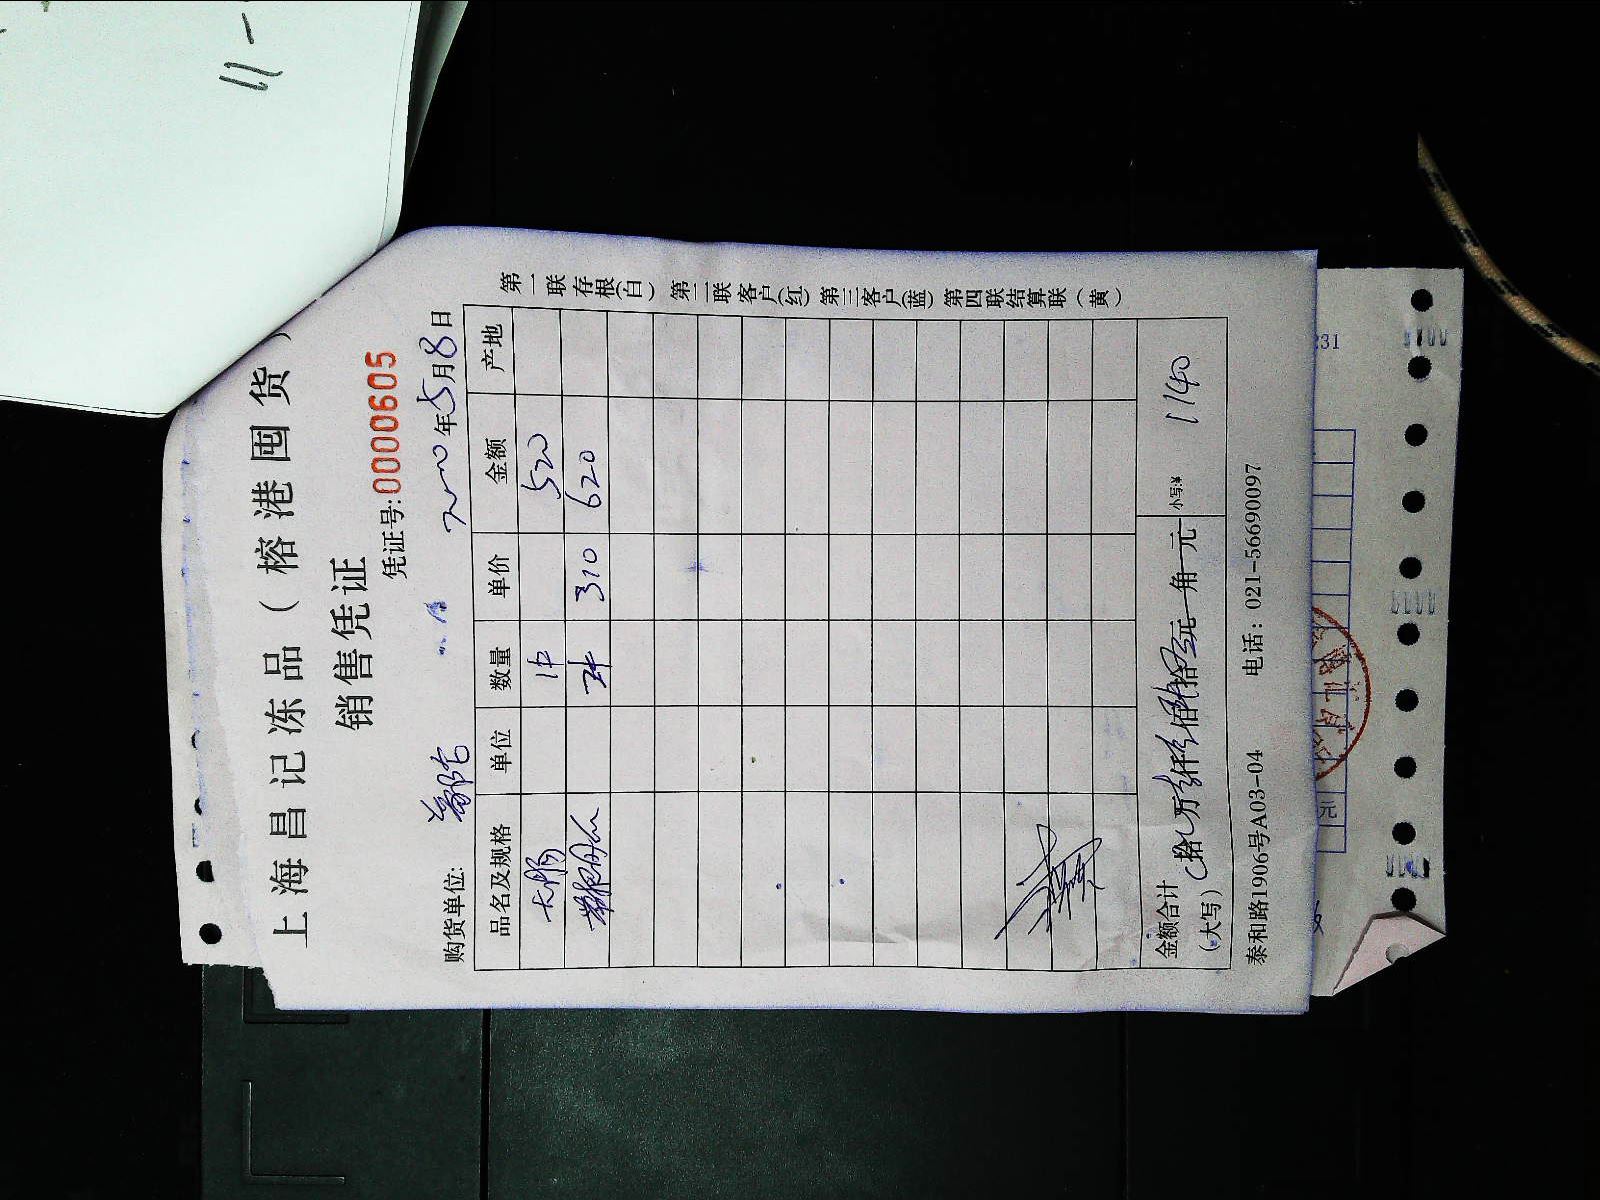 上海昌记冻品（榕港囤货）
销售凭证
凭证号:0000605
购货单位: 5月8日
品名及规格 单位 数量 单价 金额 产地
大肠 1件 520
2件 310 620
金额合计（大写） 拾 万 仟 佰 拾 元 角 元 小写:¥ 1140
泰和路1906号A03-04 电话：021-56690097
第一联存根(白) 第二联客户(红) 第三客户(蓝) 第四联结算联（黄）
231
元
11-